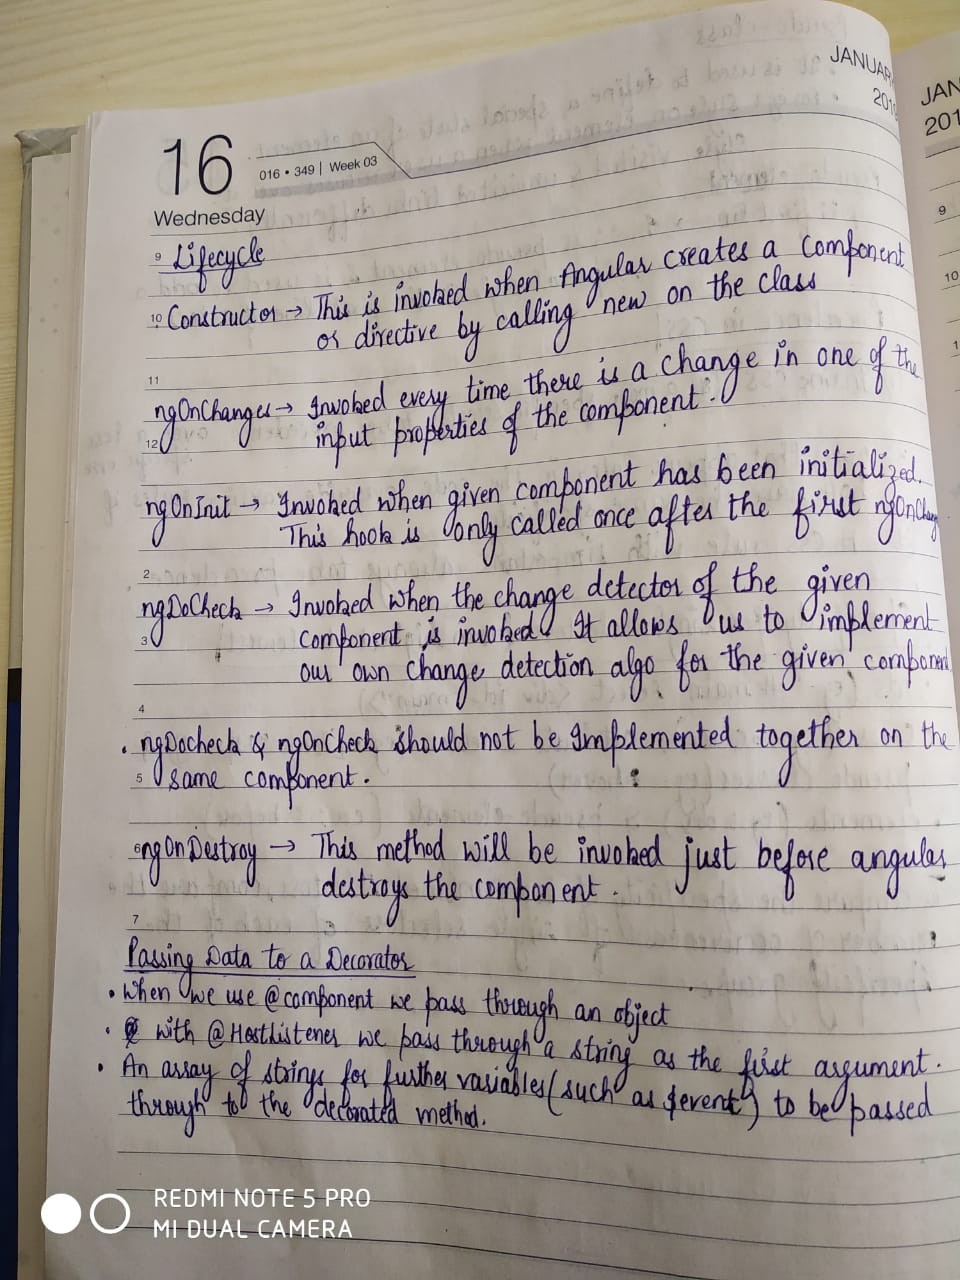 JANUAR
201
16
016 • 349 | Week 03
Wednesday
9 Lifecycle
10 Constructor → This is invoked when Angular creates a component
or directive by calling new on the class
11
ngOnChanges → Invoked every time there is a change in one of the
12 input properties of the component.
ngOnInit → Invoked when given component has been initialized.
This hook is only called once after the first ngOnChang
2
ngDoCheck → Invoked when the change detector of the given
3 component is invoked. It allows us to implement
our own change detection algo for the given component
4
• ngDocheck & ngOncheck should not be Implemented together on the
5 same component.
6 ngOnDestroy → This method will be invoked just before angular
destroys the component.
7
Passing Data to a Decorator
• When we use @component we pass through an object
• with @HostListener we pass through a string as the first argument.
• An array of strings for further variables (such as $event) to be passed
through to the decorated method.
JAN
201
9
10
1
REDMI NOTE 5 PRO
MI DUAL CAMERA